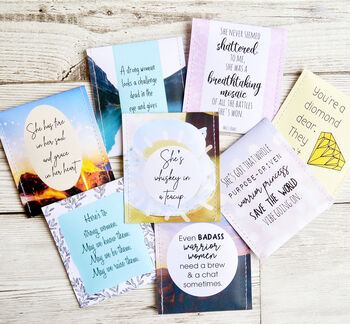 SHE NEVER SEEMED
shattered
TO ME,
SHE WAS A
breathtaking
mosaic
OF ALL THE BATTLES
SHE'S WON.
A strong woman
looks a challenge
dead in the
eye and gives
You're a
diamond
dear,
They
She has fire
in her soul
and grace
in her heart
She's
whiskey in
a teacup
SHE'S GOT THAT WHOLE
PURPOSE-DRIVEN
warrior princess
SAVE THE WORLD
VIBE GOING ON
Here's to
strong women,
May we know them.
May we be them.
May we raise them.
Even BADASS
warrior
women
need a brew
& a chat
sometimes.